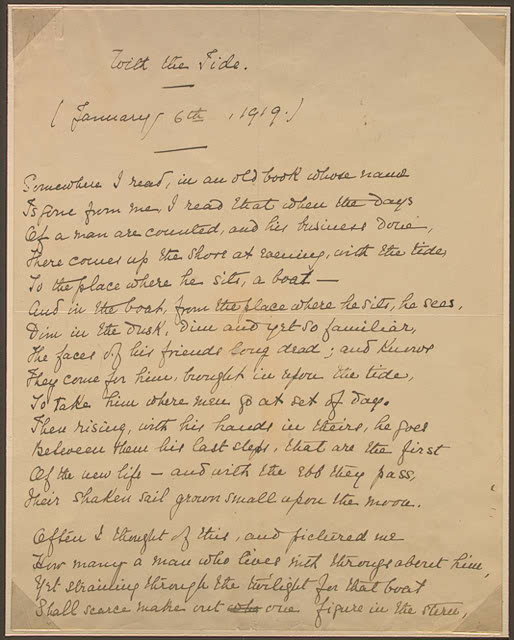 With the Tide.
(January 6th, 1919.)
Somewhere I read, in an old book whose name
Is gone from me, I read that when the days
Of a man are counted, and his business done,
There comes up the shore at evening, with the tide,
To the place where he sits, a boat —
And in the boat, from the place where he sits, he sees,
Dim in the dusk, dim and yet so familiar,
The faces of his friends long dead; and knows
They come for him, brought in upon the tide,
To take him where men go at set of day.
Then rising, with his hands in theirs, he goes
Between them his last steps, that are the first
Of the new life — and with the ebb they pass,
Their shaken sail grown small upon the moon.
Often I thought of this, and pictured me
How many a man who lives with throngs about him,
Yet straining through the twilight for that boat
Shall scarce make out who one figure in the stern,